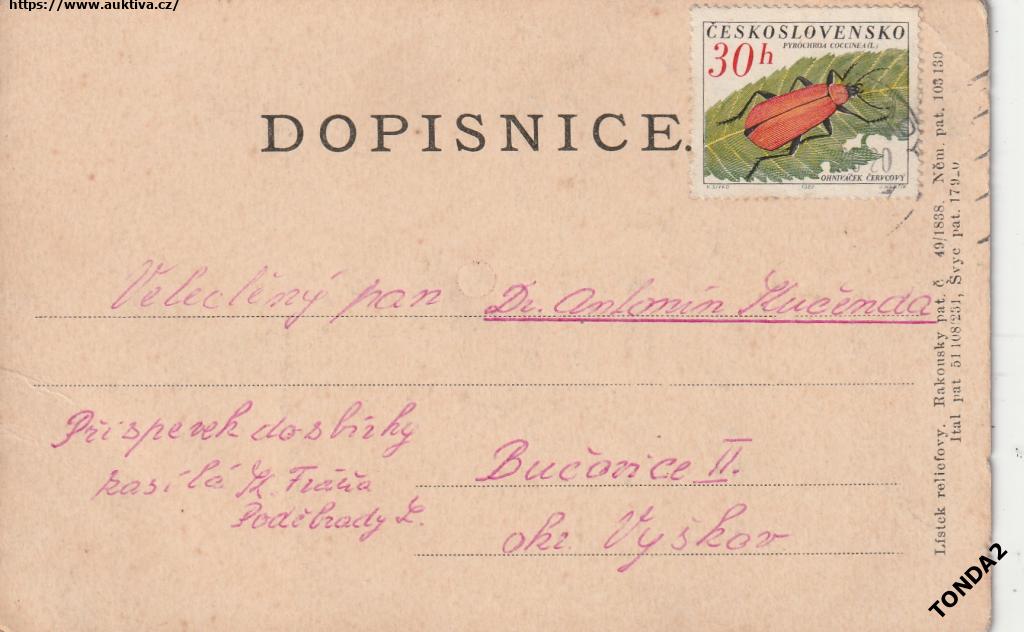 https://www.auktiva.cz/
ČESKOSLOVENSKO
PYROCHROA COCCINEA (L.)
30h
OHNIVÁČEK ČERVCOVÝ
DOPISNICE.
Velectěný pan Dr. Antonín Kučenda
Příspevek do sbírky
zasílá K. Fráňa
Poděbrady L.
Bučovice II.
okr. Vyškov
Lístek reliefovy. Rakousky pat. č 49/1838. Něm. pat. 103139
Ital pat 51 108/231, Švyc pat. 179
TONDA2